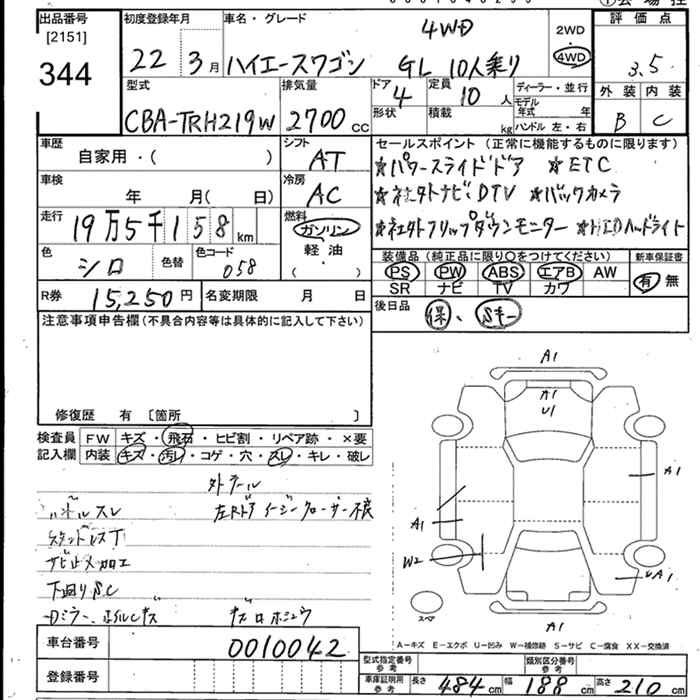 出品番号
[2151]
344
初度登録年月
22 3月
車名・グレード
4WD
ハイエースワゴン GL 10人乗り
2WD
4WD
評価点
3.5
外装 内装
B C
型式
CBA-TRH219W
排気量
2700cc
ドア
4
形状
定員
10人
積載
kg
ディーラー・並行
モデル
年式 年
ハンドル 左・右
車歴
自家用・( )
シフト
AT
車検
年 月( 日)
冷房
AC
走行
19万5千158km
燃料
ガソリン
軽油
( ・ )
色
シロ
色替
色コード
058
R券
15,250円
名変期限 月 日
セールスポイント(正常に機能するものに限ります)
★パワースライドドア ★ETC
★社外ナビ・DTV ★バックカメラ
★社外フリップダウンモニター ★HIDヘッドライト
装備品(純正品に限り○をつけてください)
PS PW ABS エアB AW
SR ナビ TV カワ
新車保証書
有 無
後日品
保、Sキー
注意事項申告欄(不具合内容等は具体的に記入して下さい)
修復歴 有 〔箇所 〕
検査員
記入欄
FW キズ・飛石・ヒビ割・リペア跡・×要
内装 キズ・汚レ・コゲ・穴・スレ・キレ・破レ
左Rドア イージークローザー不良
サビ止メ加工
下回りS.C
A1
A1
U1
A1
A1
W2
UA1
スペア
A1
A-キズ E-エクボ U-凹み W-補修跡 S-サビ C-腐食 XX-交換済
車台番号
0010042
登録番号
型式指定番号
参考
類別区分番号
参考
車庫証明用
参考
長さ 484cm 幅 188cm 高さ 210cm